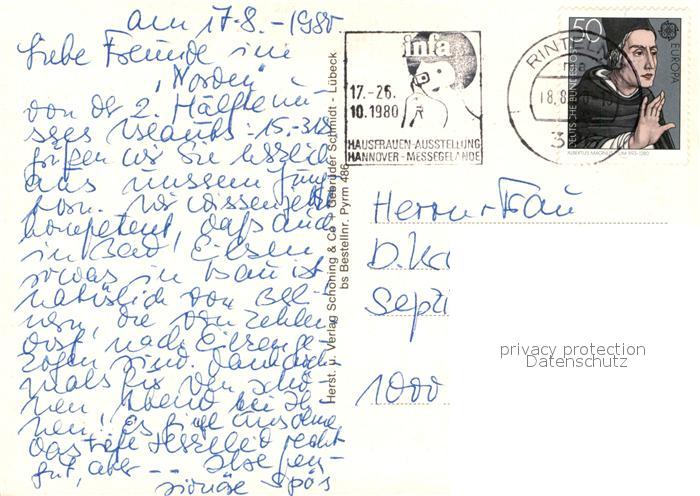 am 17.8.-1980
Liebe Freunde im
"Norden"
von der 2. Hälfte un-
seres Urlaubs: 15.-31.8.
grüßen wir Sie herzlich
aus unserem Jung-
born. Wir wissen jetzt
kompetent, daß auch
in Bad Eilsen
sowas in Bau ist
natürlich von Bel-
nern, die von Zehlen-
dorf nach Eilsen ge-
zogen sind. Dank noch-
mals für den schö-
nen Abend bei Ih-
nen! Es ging uns ohne
das tiefe Herzeleid recht
gut, aber -- Ihre pen-
sionäre Spös
Herst. u. Verlag Schöning & Co + Gebrüder Schmidt - Lübeck
bs Bestellnr. Pyrm 486
infa
17.-26.
10.1980
HAUSFRAUEN-AUSSTELLUNG
HANNOVER-MESSEGELÄNDE
RINTELN
18.8.
3
50
EUROPA
DEUTSCHE BUNDESPOST
ALBERTUS MAGNUS 1193-1280
Herrn + Frau
D. Ka
Septi
1000
privacy protection
Datenschutz